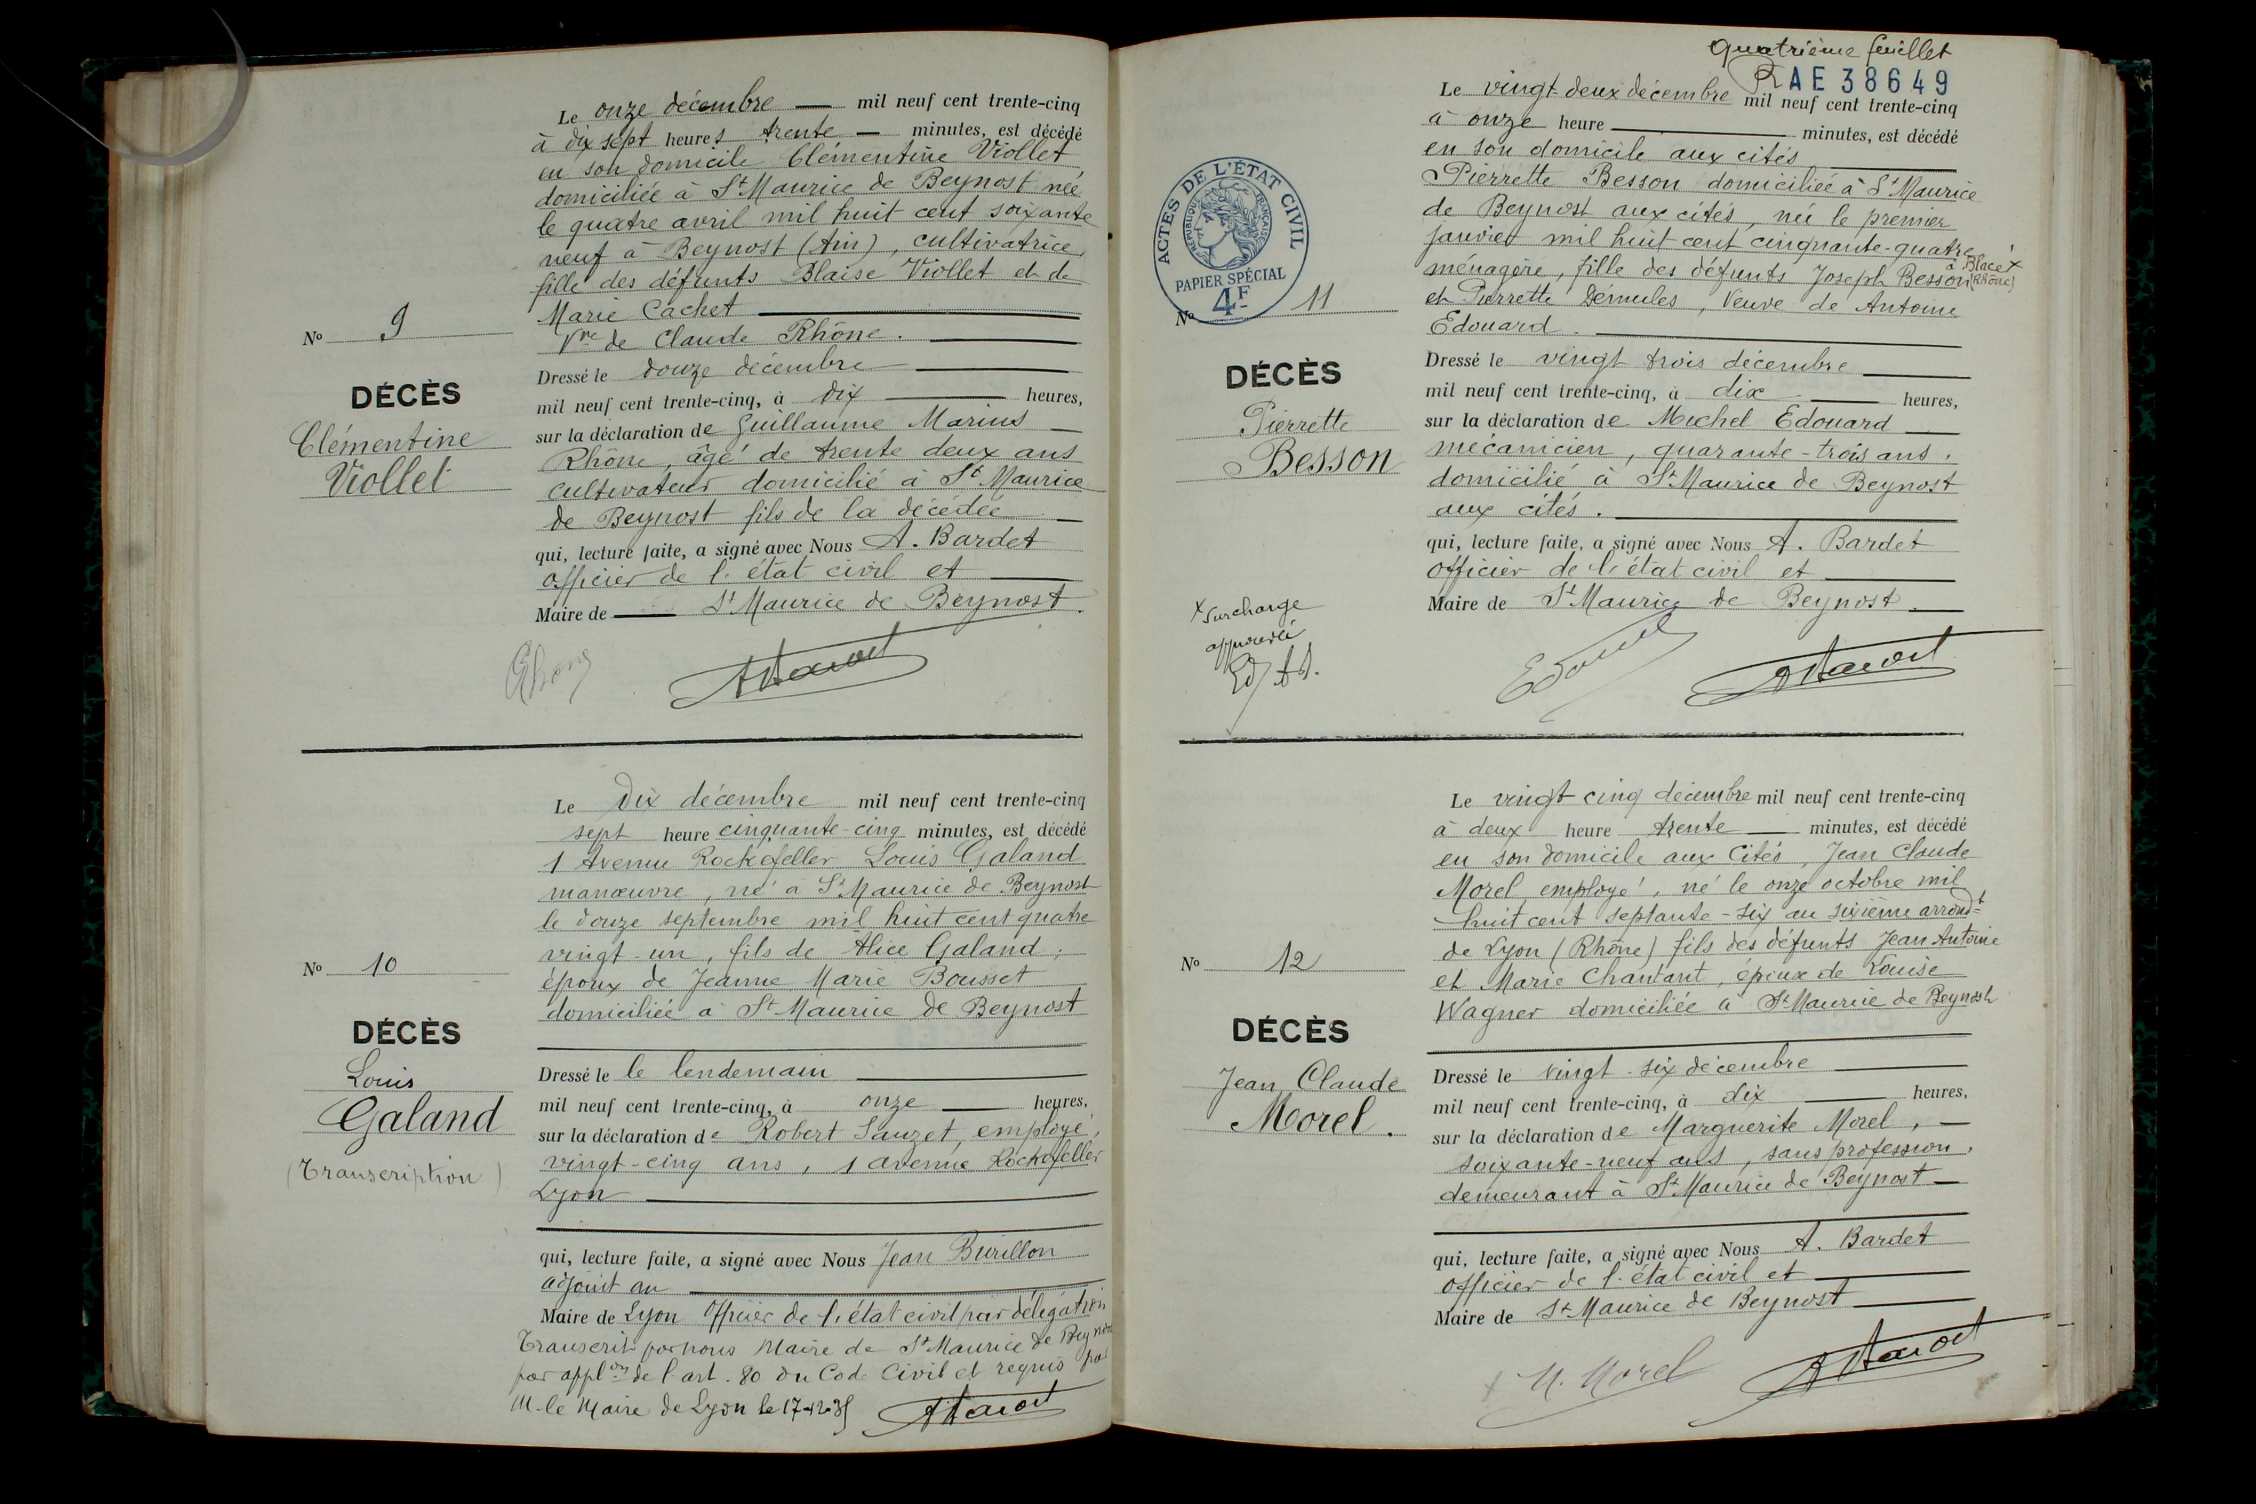 Le onze décembre mil neuf cent trente-cinq
à dix sept heures trente minutes, est décédé
en son domicile Clémentine Viollet
domiciliée à St Maurice de Beynost née
le quatre avril mil huit cent soixante
neuf à Beynost (Ain), cultivatrice
fille des défunts Blaise Viollet et de
Marie Cachet
Vve de Claude Rhône.
No 9
DÉCÈS
Clémentine
Viollet
Dressé le douze décembre
mil neuf cent trente-cinq, à dix heures,
sur la déclaration de Guillaume Marius
Rhône, âgé de trente deux ans
cultivateur domicilié à St Maurice
de Beynost fils de la décédée
qui, lecture faite, a signé avec Nous A. Bardet
officier de l'état civil et
Maire de St Maurice de Beynost.
Le Dix décembre mil neuf cent trente-cinq
sept heure cinquante-cinq minutes, est décédé
1 Avenue Rockefeller Louis Galand
manœuvre, né à St Maurice de Beynost
le douze septembre mil huit cent quatre
vingt-un, fils de Alice Galand;
époux de Jeanne Marie Bousset
domiciliée à St Maurice de Beynost
No 10
DÉCÈS
Louis
Galand
(Transcription)
Dressé le le lendemain
mil neuf cent trente-cinq, à onze heures,
sur la déclaration de Robert Sauzet, employé,
vingt-cinq ans, 1 avenue Rockefeller
Lyon
qui, lecture faite, a signé avec Nous Jean Burillon
adjoint au
Maire de Lyon Officier de l'état civil par délégation
Transcrit par nous Maire de St Maurice de Beynost
par applon de l'art. 80 du Code Civil et requis par
M. le Maire de Lyon le 17-12-35
quatrième feuillet
AE 38649
Le vingt-deux décembre mil neuf cent trente-cinq
à onze heure minutes, est décédé
en son domicile aux cités
Pierrette Besson domiciliée à St Maurice
de Beynost aux cités, née le premier
janvier mil huit cent cinquante-quatre
à Blacé x
(Rhône)
ménagère, fille des défunts Joseph Besson
et Pierrette Démules, Veuve de Antoine
Edouard.
ACTES DE L'ÉTAT CIVIL
RÉPUBLIQUE FRANÇAISE
PAPIER SPÉCIAL
4F
No 11
DÉCÈS
Pierrette
Besson
Dressé le vingt trois décembre
mil neuf cent trente-cinq, à dix heures,
sur la déclaration de Michel Edouard
mécanicien, quarante-trois ans,
domicilié à St Maurice de Beynost
aux cités.
qui, lecture faite, a signé avec Nous A. Bardet
officier de l'état civil et
Maire de St Maurice de Beynost.
x Surcharge
approuvée
Le vingt cinq décembre mil neuf cent trente-cinq
à deux heure trente minutes, est décédé
en son domicile aux Cités, Jean Claude
Morel, employé, né le onze octobre mil
huit cent septante-six au sixième arrondt
de Lyon (Rhône) fils des défunts Jean Antoine
et Marie Chantant, époux de Louise
Wagner domiciliée à St Maurice de Beynost
No 12
DÉCÈS
Jean Claude
Morel.
Dressé le vingt-six décembre
mil neuf cent trente-cinq, à dix heures,
sur la déclaration de Marguerite Morel,
soixante-neuf ans, sans profession,
demeurant à St Maurice de Beynost
qui, lecture faite, a signé avec Nous A. Bardet
officier de l'état civil et
Maire de St Maurice de Beynost
M. Morel